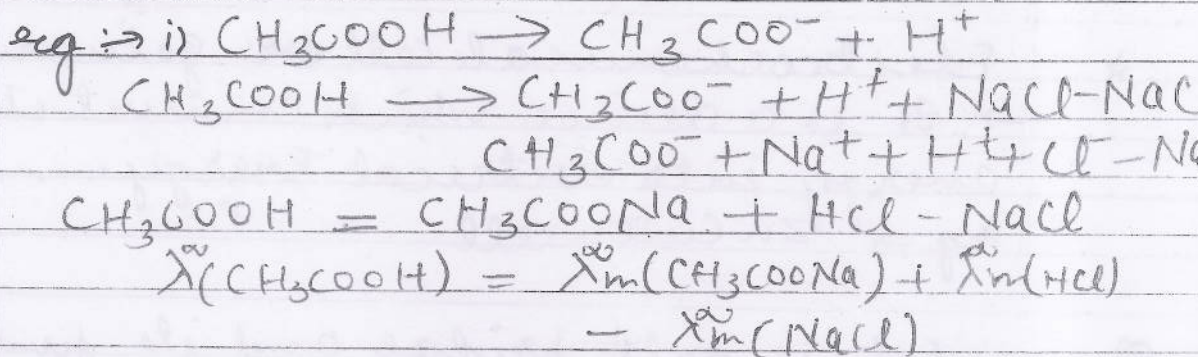 eg :⇒ i) CH₃COOH → CH₃COO⁻ + H⁺
CH₃COOH → CH₃COO⁻ + H⁺ + NaCl-NaC
CH₃COO⁻ + Na⁺ + H⁺ + Cl⁻ - Na
CH₃COOH = CH₃COONa + HCl - NaCl
λ^∞(CH₃COOH) = λ^∞m(CH₃COONa) + λ^∞m(HCl)
- λ^∞m(NaCl)